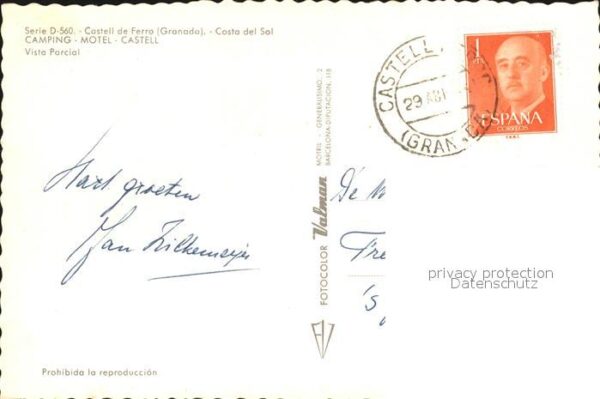 Serie D-560. - Castell de Ferro (Granada). - Costa del Sol
CAMPING - MOTEL - CASTELL
Vista Parcial
CASTELL
29 ABI
(GRANADA)
1
PTA
ESPAÑA
CORREOS
Hart. groeten
Jan
MOTRIL - GENERALISIMO, 2
BARCELONA-DIPUTACION, 318
FOTOCOLOR Valman
De
Fre
's
privacy protection
Datenschutz
Prohibida la reproducción